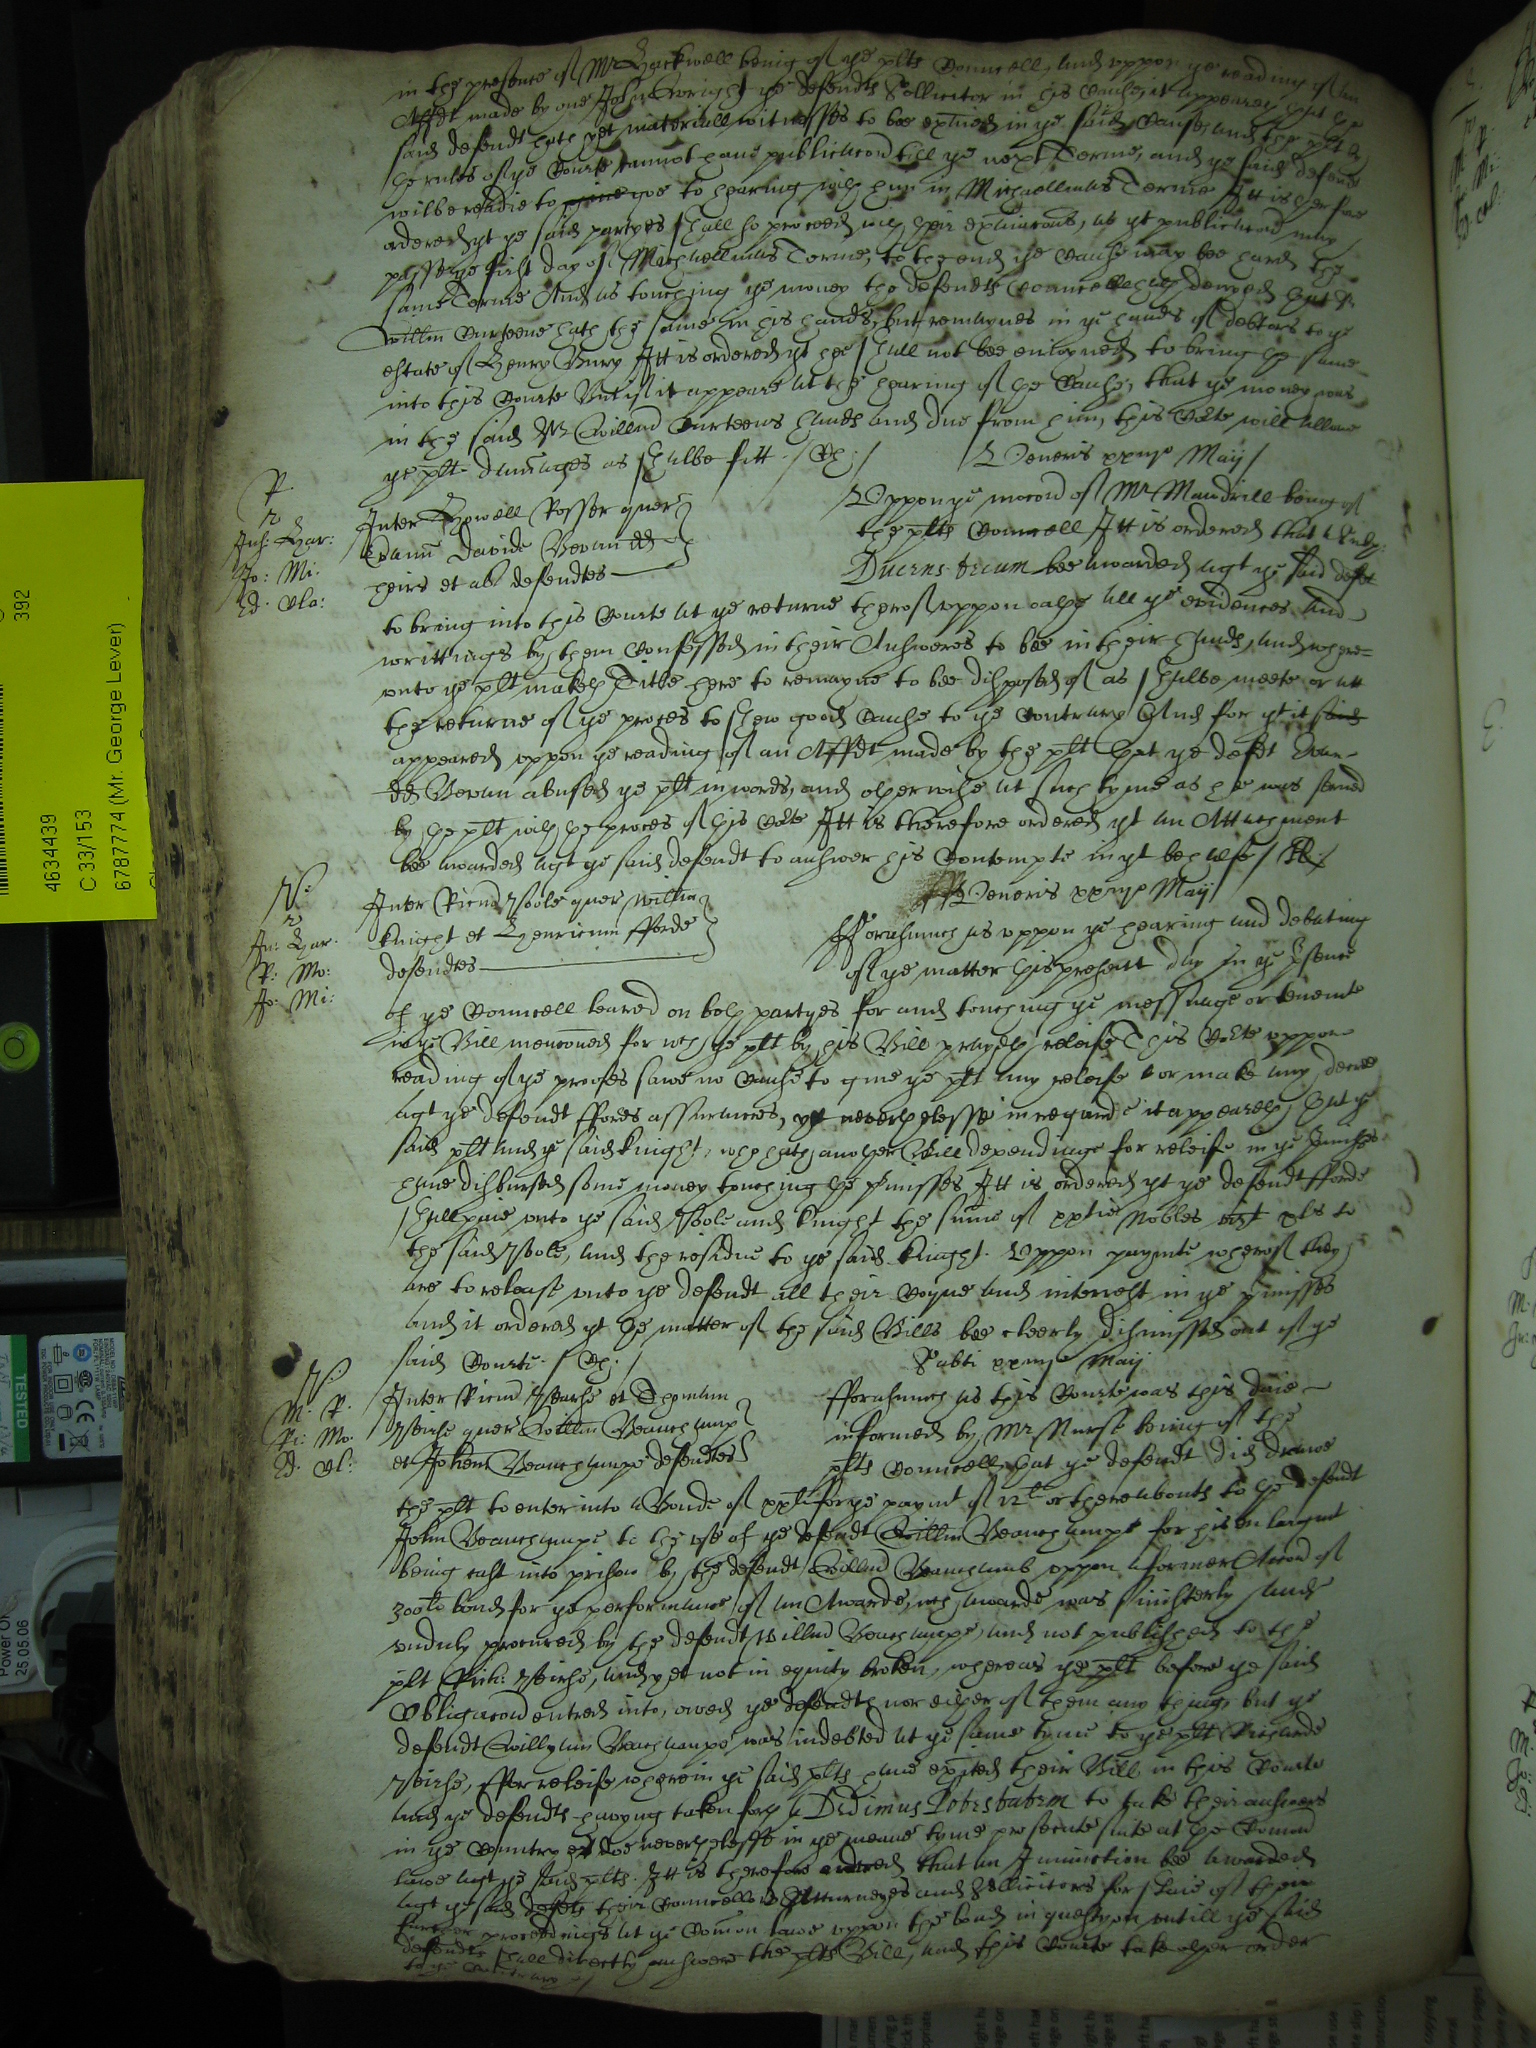 in the presence of Mr Hackwell being of ye plts Councell, and uppon ye reading of an
Affdt made by one John Wright ye defendts Sollicitor in this Cause, it appeareth that the
said defendt hath yet materiall witnesses to bee exaied in ye said Cause, and the plt by
the rules of ye Courte cannot have publicacon till ye next Terme, and ye said defendt
wilbe readie to goe to hearing with him in Michaellmas Terme Itt is therfore
ordered yt ye said partyes shall so proceed with their exaiacons, as yt publicacon may
passe ye first day of Michaellmas Terme, to the end ye Cause may bee hard the
same Terme And as touching ye money the defendts Councell hath denyed that Sr
Willm Curteene hath the same in his hands, but remaynes in ye hands of debtors to ye
estate of Henry Bury Itt is ordered yt hee shall not bee enioyned to bring the same
into this Courte But if it appeare at the hearing of the Cause, that ye money was
in the said Sr Willm Curteens hands and due from him, this Corte will allowe
ye plt damages as shalbe fitt. / Ex. /
Veneris xxvijo Maij /
P.
r
Ans: Har:
Jo: Mi:
Ed. Cla:
Inter Howell Rosser quer
Evanu Davide Bevan
heirs et al defendtes
Uppon ye mocon of Mr Mandrill being of
the plts Councell Itt is ordered that a Subp:
Ducens tecum bee awarded agt ye said deft
to bring into this Courte at ye returne therof uppon oathe all ye evidences and
writtings by them Confessed in their Answeres to bee in their hands, and where=
unto ye plt maketh Title here to remayne to bee disposed of as shalbe meete or att
the returne of ye proces to shew good Cause to ye Contrary And for yt it said
appeared uppon ye reading of an Affdt made by the plt that ye defdt Evan
Bevan abused ye plt in words, and otherwise at such tyme as hee was served
by the plt with the proces of this Corte Itt is therefore ordered yt an Attachment
bee awarded agt ye said defendt to answer his Contempte in yt behalfe /
Veneris xxvijo Maij
N:
r
An: Har.
P: Mo:
Jo: Mi:
Inter Ricm Poole quer Willm
Knight et Henricum fforde
defendtes
fforasmuch as uppon ye hearing and debating
of ye matter this present day in ye psence
of ye Councell learned on both partyes for and touching ye messuage or tenemte
in ye Bill menconed for wch ye plt by his Bill prayeth releife This Corte uppon
reading of ye proofes sawe no Cause to give ye plt any releife or make any decree
agt ye defendt ffordes assurances, yet neverthelesse in regard it appeareth, that ye
said plt and ye said Knight, who hath another Bill depending for releife in ye pmisses
have disbursed some money touching the pmisses Itt is ordered yt ye defendt fforde
shall paie unto ye said Poole and Knight the sume of xxtie Nobles vizt xls to
the said Poole, and the residue to ye said Knight. Uppon paymte wherof they
are to release unto ye defendt all their and interest in ye pmisses
and it ordered yt the matter of the said Bills bee cleerly dismissed out of ye
said Courte. / Ex. /
Sabti xxviijo Maij
N
M: P.
Ri: Mo.
Ed. Cl:
Inter Ricm et Thomam
quer Willm Beauchamp
et Johem Beauchampe defendtes
fforasmuch as this Courte was this daie
informed by Mr Nurse being of the
plts Councell, that ye defendt did drawe
the plt to enter into a Bonde of xxli for ye paymt of 12li or thereabouts to the defendt
John Beauchampe to the use of ye defendt Willm Beauchampe for his enlargmt
being cast into prison by the defendt Willm Beauchamb uppon a former Accon of
300li bond for ye performance of an Awarde, wch Awarde was sinisterly and
unduly procured by the defendt Willm Beauchampe, and not published to the
plt Rich: , and yet not in equity broken, whereas ye plt before ye said
Obligacon entred into, owed ye defendts nor either of them any thing, but ye
defendt Willyam Beauchampe was indebted at ye same tyme to ye plt Richarde
, ffor releife wherein ye said plts have exited their Bill in this Courte
and ye defendts having taken forth a Dedimus Potestatem to take their answers
in ye Countrey doe neverthelesse in ye meane tyme prosecute suite at the Comon
lawe agt ye said plts. Itt is therefore ordered that an Iniunction bee awarded
agt ye said defts their Councellors Atturneyes and Sollicitors for staie of their
further proceedings at ye Comon lawe uppon the bond in question untill ye said
defendts shall directly answere the plts Bill, and this Courte take other order
to ye contrary /
392
4634439
C 33/153
6787774 (Mr. George Lever)
TESTED
Power O
25.05.06